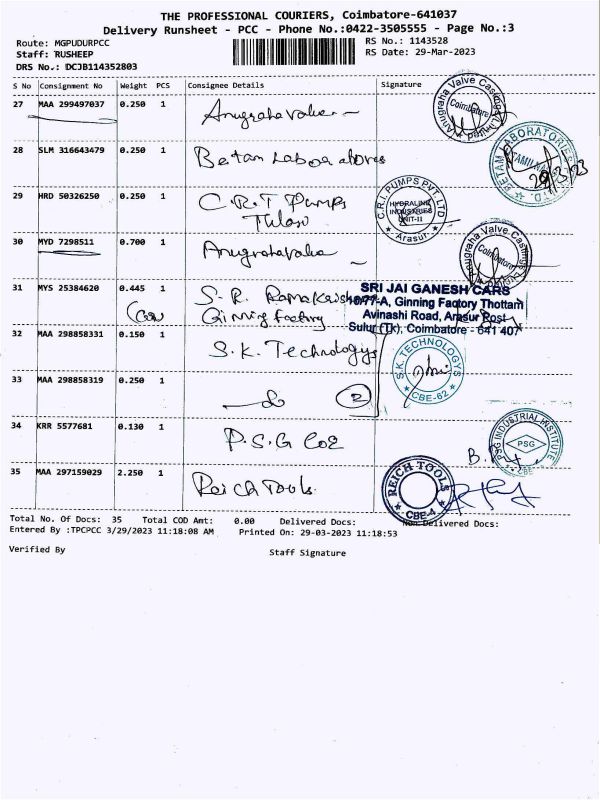 THE PROFESSIONAL COURIERS, Coimbatore-641037
Delivery Runsheet - PCC - Phone No.:0422-3505555 - Page No.:3
Route: MGPUDURPCC
Staff: RUSHEEP
DRS No.: DCJB114352803
RS No.: 1143528
RS Date: 29-Mar-2023
S No Consignment No Weight PCS Consignee Details Signature
27 MAA 299497037 0.250 1 Anugraha Valve
Anugraha Valve Castings Limited
Coimbatore
28 SLM 316643479 0.250 1 Betam Laboratories
BETAM LABORATORIES
TAMILNADU
29/3/23
29 HRD 50326250 0.250 1 C.R.I Pumps
C.R.I. PUMPS PVT. LTD
HYDRALINK
INDUSTRIES
UNIT-II
Arasur.
30 MYD 7298511 0.700 1 Anugraha Valve
Anugraha Valve Castings
Coimbatore
31 MYS 25384620 0.445 1 S.R. Ramakrishna
Ginning factory
SRI JAI GANESH CARS
10/77-A, Ginning Factory Thottam
Avinashi Road, Arasur Post
Sulur (Tk), Coimbatore - 641 407
32 MAA 298858331 0.150 1 S.K. Technologys
S.K. TECHNOLOGYS
CBE-62
33 MAA 298858319 0.250 1
2
34 KRR 5577681 0.130 1 P.S.G COE
PSG INDUSTRIAL INSTITUTE
PSG
CBE
35 MAA 297159029 2.250 1 Reich Tools.
REICH TOOLS
CBE-4
Total No. Of Docs: 35 Total COD Amt: 0.00 Delivered Docs: Non Delivered Docs:
Entered By :TPCPCC 3/29/2023 11:18:08 AM Printed On: 29-03-2023 11:18:53
Verified By Staff Signature